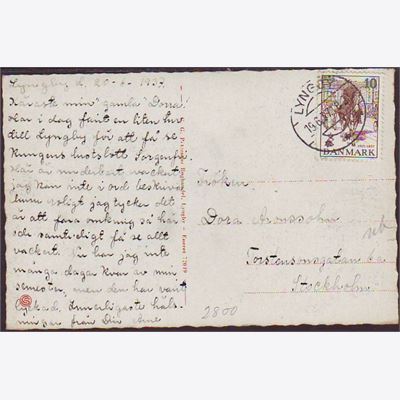 Lyngby, d. 20-6-1937.
Käraste min "gamla" Dora!
Har i dag farit en liten tur
till Lyngby för att få se
Kungens lustslott Sorgenfri.
Här är underbart vackert,
jag kan inte i ord beskriva
huru roligt jag tycker det
är att fara omkring så här
och samtidigt få se allt
vackert. Nu har jag inte
många dagar kvar av min
semester, men den har varit
lyckad. Innerligaste häls-
ningar från Din
LYNGBY
10
DANMARK
Fröken
Dora Aronssohn
Torstensonsgatan 6 a
Stockholm
2800